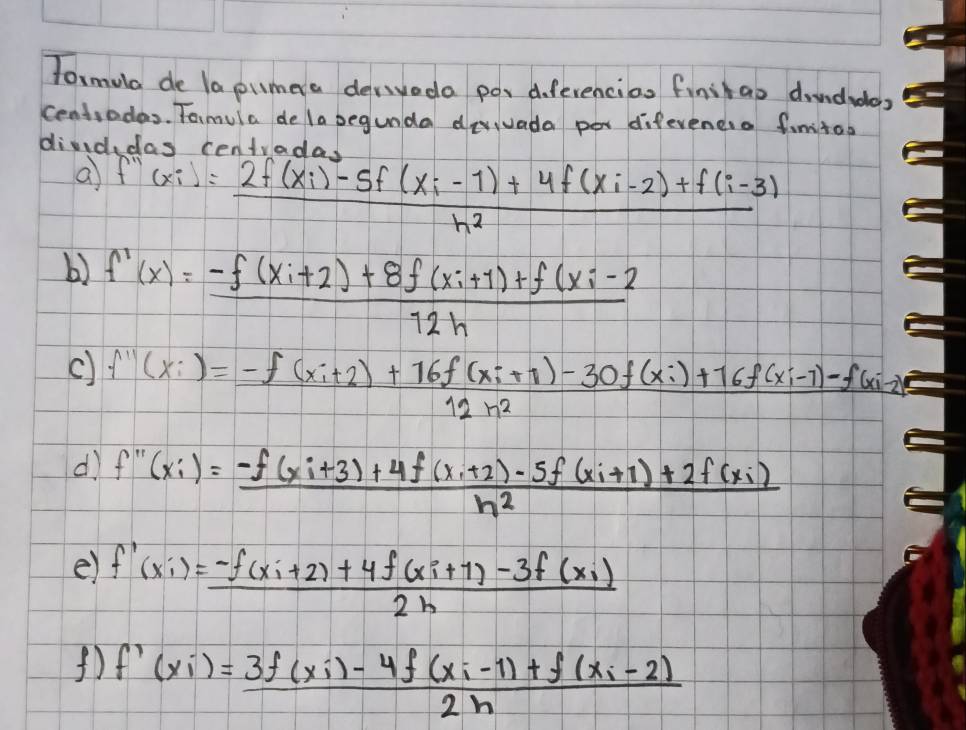 Formula de la primera derivada por diferencias finitas divididas
centradas. Formula de la segunda derivada por diferencia finitas
divididas centradas
a) f"(xi) = 2f(xi) - 5f(xi-1) + 4f(xi-2) + f(i-3) / h²
b) f'(x) = -f(xi+2) + 8f(xi+1) + f(xi-2 / 12h
c) f"(xi) = -f(xi+2) + 16f(xi+1) - 30f(xi) + 16f(xi-1) - f(xi-2) / 12h²
d) f"(xi) = -f(xi+3) + 4f(xi+2) - 5f(xi+1) + 2f(xi) / h²
e) f'(xi) = -f(xi+2) + 4f(xi+1) - 3f(xi) / 2h
f) f'(xi) = 3f(xi) - 4f(xi-1) + f(xi-2) / 2h